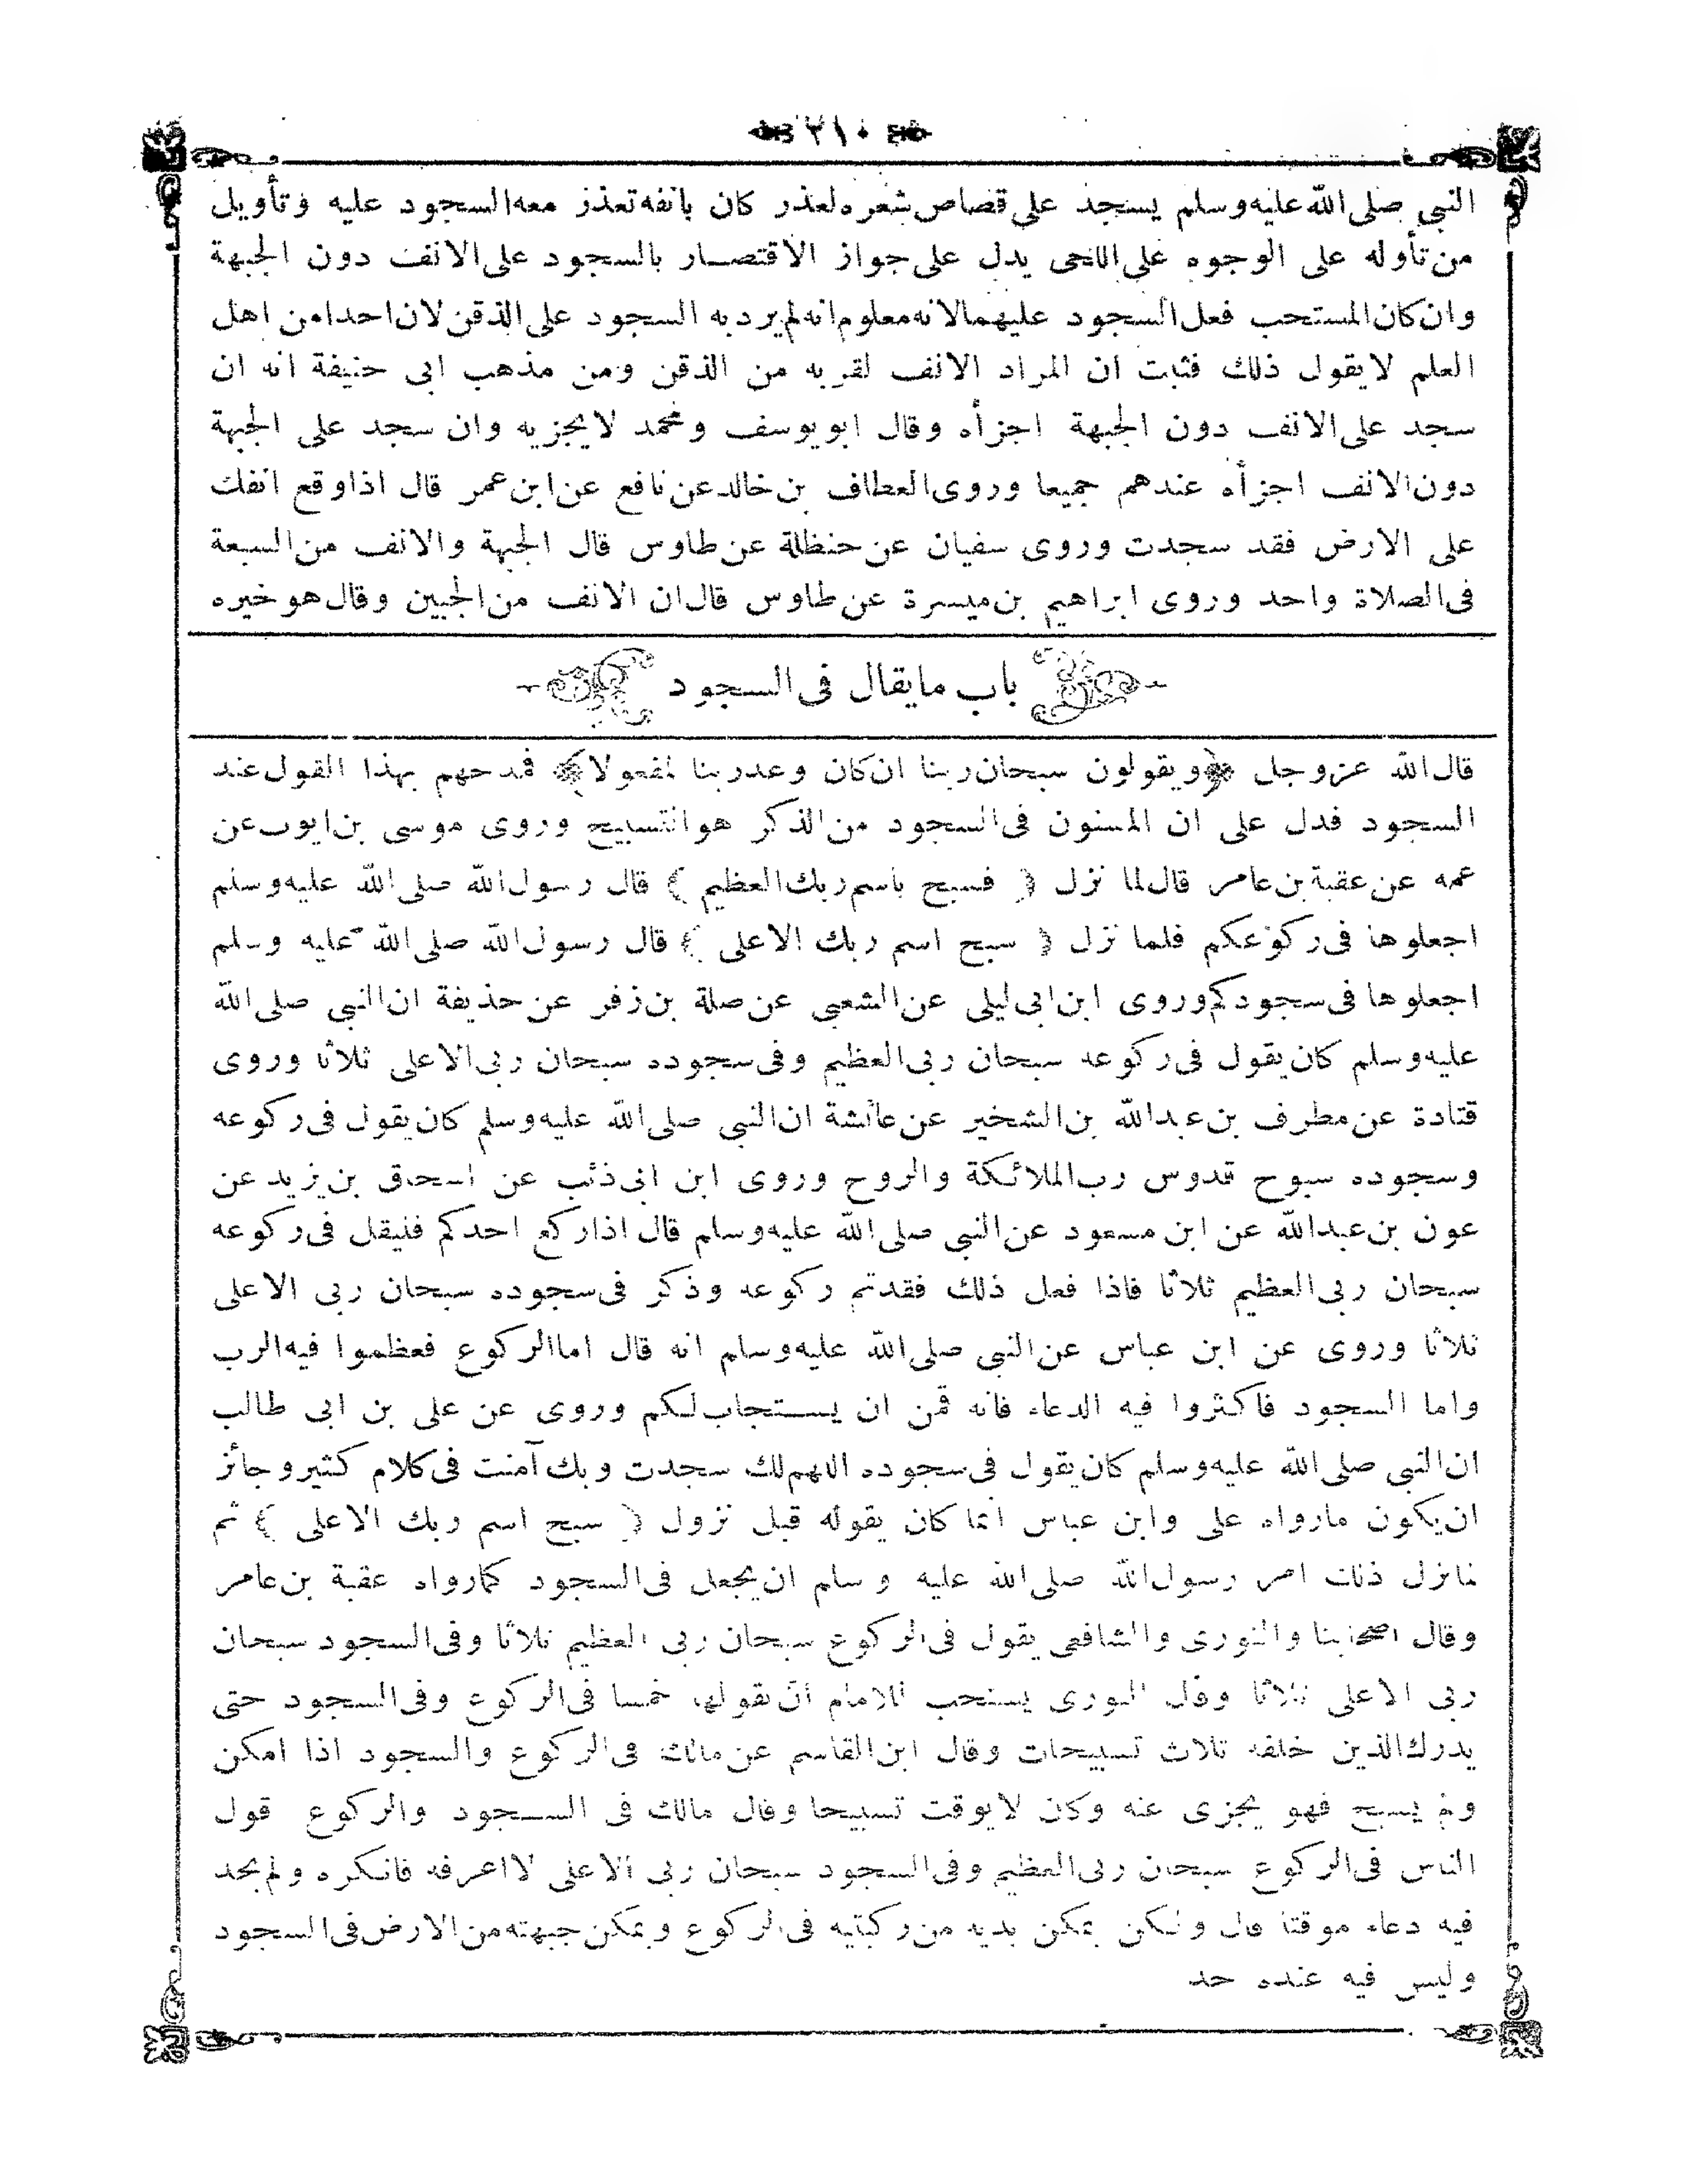 ٢١٠
النبى صلى الله عليه وسلم يسجد على قصاص شعره لعذر كان بانفه تعذر معه السجود عليه وتأويل
من تأوله على الوجوه على اللحى يدل على جواز الاقتصار بالسجود على الانف دون الجبهة
وان كان المستحب فعل السجود عليهما لانه معلوم انه لم يرد به السجود على الذقن لان احدا من اهل
العلم لا يقول ذلك فثبت ان المراد الانف لقربه من الذقن ومن مذهب ابى حنيفة انه ان
سجد على الانف دون الجبهة اجزأه وقال ابو يوسف ومحمد لا يجزيه وان سجد على الجبهة
دون الانف اجزأه عندهم جميعا وروى العطاف بن خالد عن نافع عن ابن عمر قال اذا وقع انفك
على الارض فقد سجدت وروى سفيان عن حنظلة عن طاوس قال الجبهة والانف من السبعة
فى الصلاة واحد وروى ابراهيم بن ميسرة عن طاوس قال ان الانف من الجبين وقال هو خيره
باب ما يقال فى السجود
قال الله عز وجل ﴿ويقولون سبحان ربنا ان كان وعد ربنا لمفعولا﴾ فمدحهم بهذا القول عند
السجود فدل على ان المسنون فى السجود من الذكر هو التسبيح وروى موسى بن ايوب عن
عمه عن عقبة بن عامر قال لما نزل ﴿ فسبح باسم ربك العظيم ﴾ قال رسول الله صلى الله عليه وسلم
اجعلوها فى ركوعكم فلما نزل ﴿ سبح اسم ربك الاعلى ﴾ قال رسول الله صلى الله عليه وسلم
اجعلوها فى سجودكم وروى ابن ابى ليلى عن الشعبى عن صلة بن زفر عن حذيفة ان النبى صلى الله
عليه وسلم كان يقول فى ركوعه سبحان ربى العظيم وفى سجوده سبحان ربى الاعلى ثلاثا وروى
قتادة عن مطرف بن عبدالله بن الشخير عن عائشة ان النبى صلى الله عليه وسلم كان يقول فى ركوعه
وسجوده سبوح قدوس رب الملائكة والروح وروى ابن ابى ذئب عن اسحاق بن يزيد عن
عون بن عبدالله عن ابن مسعود عن النبى صلى الله عليه وسلم قال اذا ركع احدكم فليقل فى ركوعه
سبحان ربى العظيم ثلاثا فاذا فعل ذلك فقد تم ركوعه وذكر فى سجوده سبحان ربى الاعلى
ثلاثا وروى عن ابن عباس عن النبى صلى الله عليه وسلم انه قال اما الركوع فعظموا فيه الرب
واما السجود فاكثروا فيه الدعاء فانه قمن ان يستجاب لكم وروى عن على بن ابى طالب
ان النبى صلى الله عليه وسلم كان يقول فى سجوده اللهم لك سجدت وبك آمنت فى كلام كثير وجائز
ان يكون ما رواه على وابن عباس انما كان يقوله قبل نزول ﴿ سبح اسم ربك الاعلى ﴾ ثم
لما نزل ذلك امر رسول الله صلى الله عليه وسلم ان يجعل فى السجود كما رواه عقبة بن عامر
وقال اصحابنا والثورى والشافعى يقول فى الركوع سبحان ربى العظيم ثلاثا وفى السجود سبحان
ربى الاعلى ثلاثا وقال الثورى يستحب للامام ان يقولها خمسا فى الركوع وفى السجود حتى
يدرك الذين خلفه ثلاث تسبيحات وقال ابن القاسم عن مالك فى الركوع والسجود اذا امكن
ولم يسبح فهو يجزى عنه وكان لا يوقت تسبيحا وقال مالك فى السجود والركوع قول
الناس فى الركوع سبحان ربى العظيم وفى السجود سبحان ربى الاعلى لا اعرفه فانكره ولم يحد
فيه دعاء موقتا قال ولكن يمكن يديه من ركبتيه فى الركوع ويمكن جبهته من الارض فى السجود
وليس فيه عنده حد